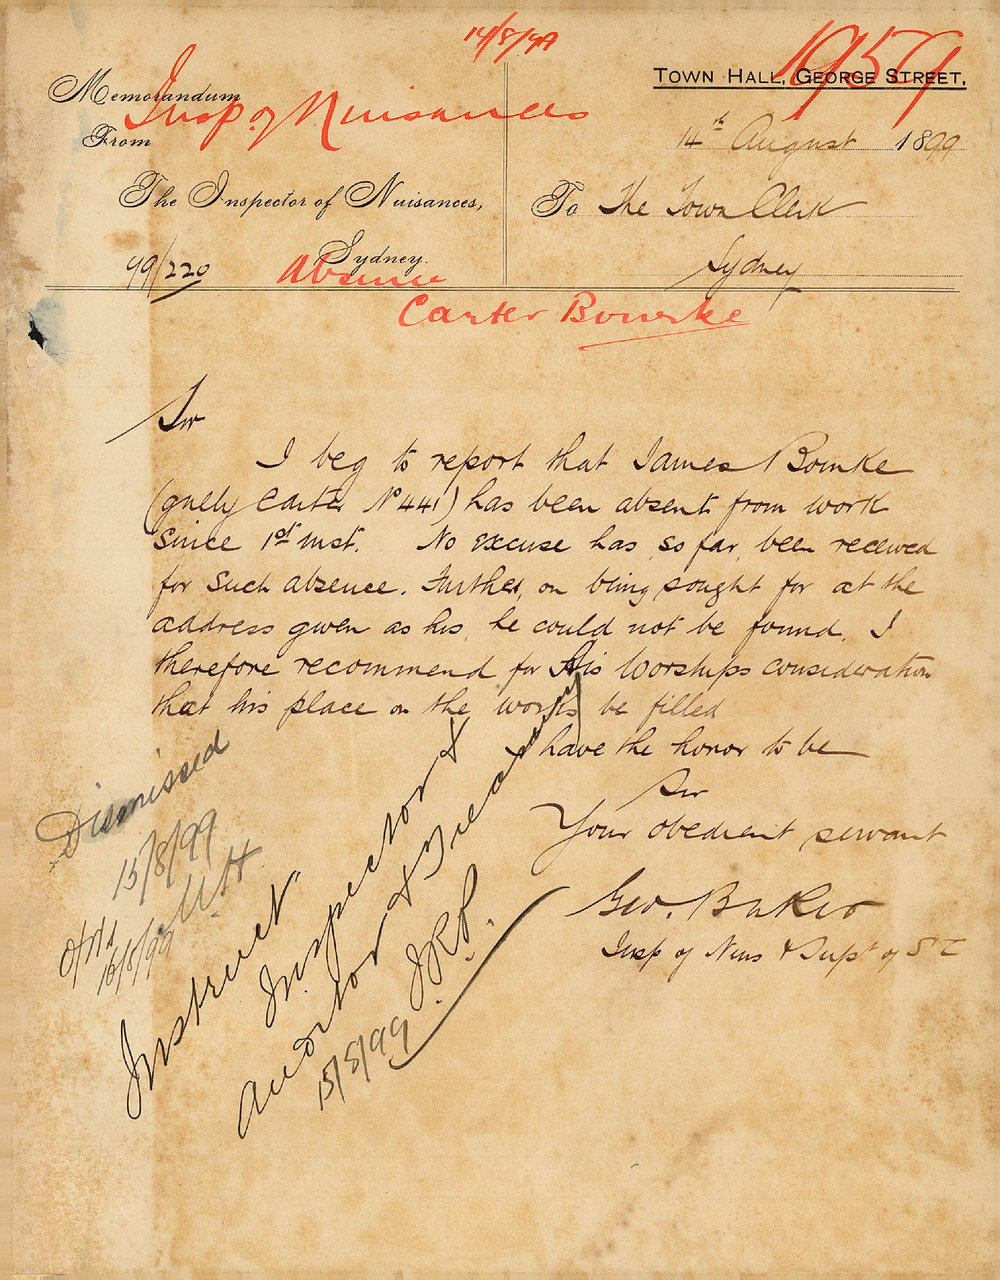 14/8/99
1959
TOWN HALL, GEORGE STREET.
Memorandum
Insp. of Nuisances
From
14th August 1899
The Inspector of Nuisances,
To The Town Clerk
Sydney.
Sydney
99/220
Absence
Carter Bourke
Sir
I beg to report that James Bourke
(gully carter No 441) has been absent from work
since 1st inst. No excuse has so far, been received
for such absence. Further, on being sought for at the
address given as his, he could not be found. I
therefore recommend for His Worships consideration
that his place on the works be filled
I have the honor to be
Sir
Your obedient servant
Geo. Baker
Insp of Nuis & Supt of S C
Dismissed
15/8/99
16/8/99
Instruct
Inspector &
auditor & Treasury
JRP.
15/8/99